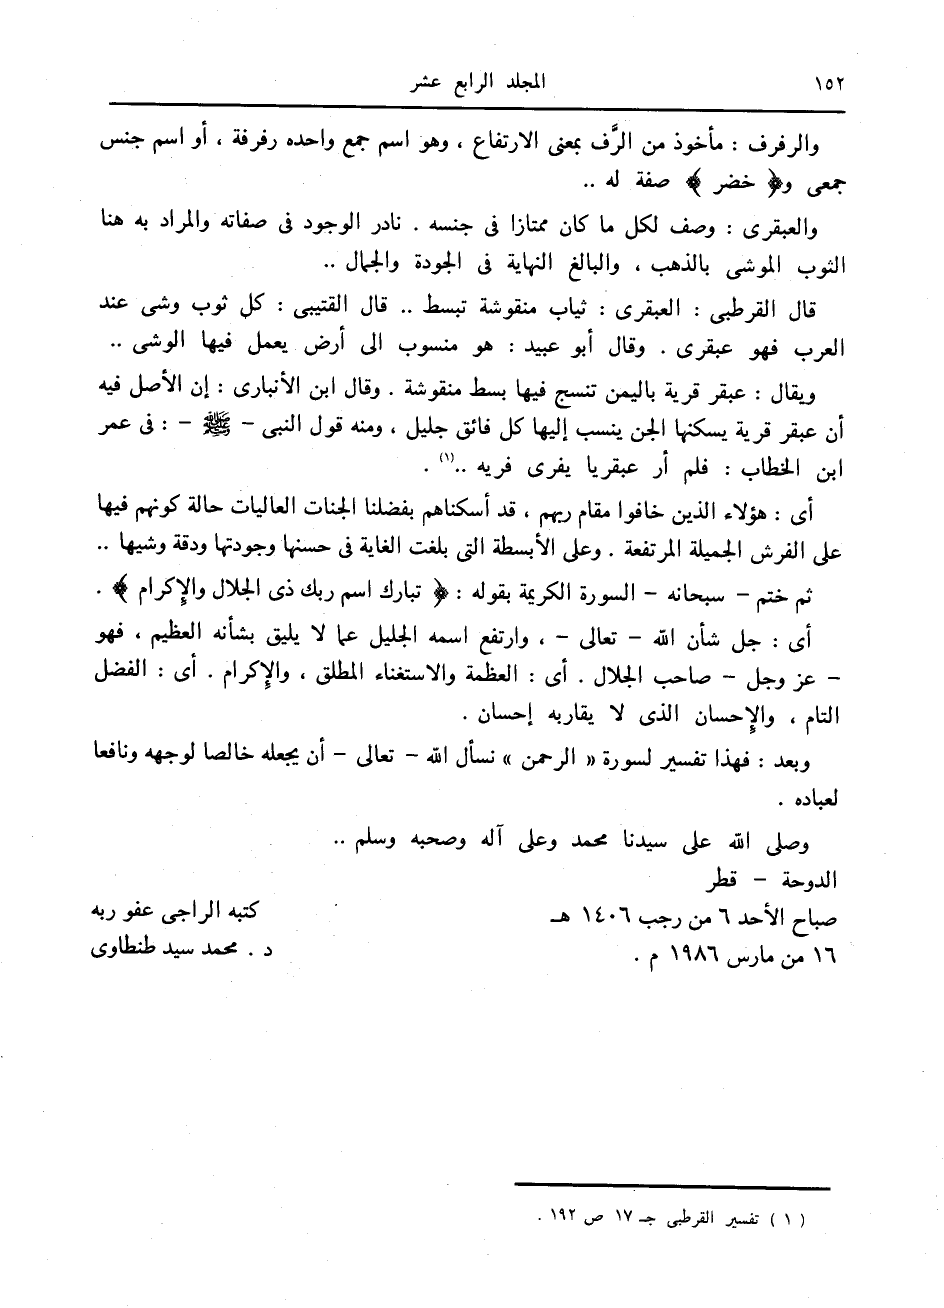 ١٥٢ المجلد الرابع عشر
والرفرف : مأخوذ من الرَّف بمعنى الارتفاع ، وهو اسم جمع واحده رفرفة ، أو اسم جنس
جمعى و﴿ خضر ﴾ صفة له ..
والعبقرى : وصف لكل ما كان ممتازا فى جنسه . نادر الوجود فى صفاته والمراد به هنا
الثوب الموشى بالذهب ، والبالغ النهاية فى الجودة والجمال ..
قال القرطبى : العبقرى : ثياب منقوشة تبسط .. قال القتيبى : كل ثوب وشى عند
العرب فهو عبقرى . وقال أبو عبيد : هو منسوب الى أرض يعمل فيها الوشى ..
ويقال : عبقر قرية باليمن تنسج فيها بسط منقوشة . وقال ابن الأنبارى : إن الأصل فيه
أن عبقر قرية يسكنها الجن ينسب إليها كل فائق جليل ، ومنه قول النبى - ﷺ - : فى عمر
ابن الخطاب : فلم أر عبقريا يفرى فريه ..(١) .
أى : هؤلاء الذين خافوا مقام ربهم ، قد أسكناهم بفضلنا الجنات العاليات حالة كونهم فيها
على الفرش الجميلة المرتفعة . وعلى الأبسطة التى بلغت الغاية فى حسنها وجودتها ودقة وشيها ..
ثم ختم - سبحانه - السورة الكريمة بقوله : ﴿ تبارك اسم ربك ذى الجلال والإكرام ﴾ .
أى : جل شأن الله - تعالى - ، وارتفع اسمه الجليل عما لا يليق بشأنه العظيم ، فهو
- عز وجل - صاحب الجلال . أى : العظمة والاستغناء المطلق ، والإكرام . أى : الفضل
التام ، والإحسان الذى لا يقاربه إحسان .
وبعد : فهذا تفسير لسورة « الرحمن » نسأل الله - تعالى - أن يجعله خالصا لوجهه ونافعا
لعباده .
وصلى الله على سيدنا محمد وعلى آله وصحبه وسلم ..
الدوحة - قطر
صباح الأحد ٦ من رجب ١٤٠٦ هـ كتبه الراجى عفو ربه
١٦ من مارس ١٩٨٦ م . د . محمد سيد طنطاوى
( ١ ) تفسير القرطبى جـ ١٧ ص ١٩٢ .